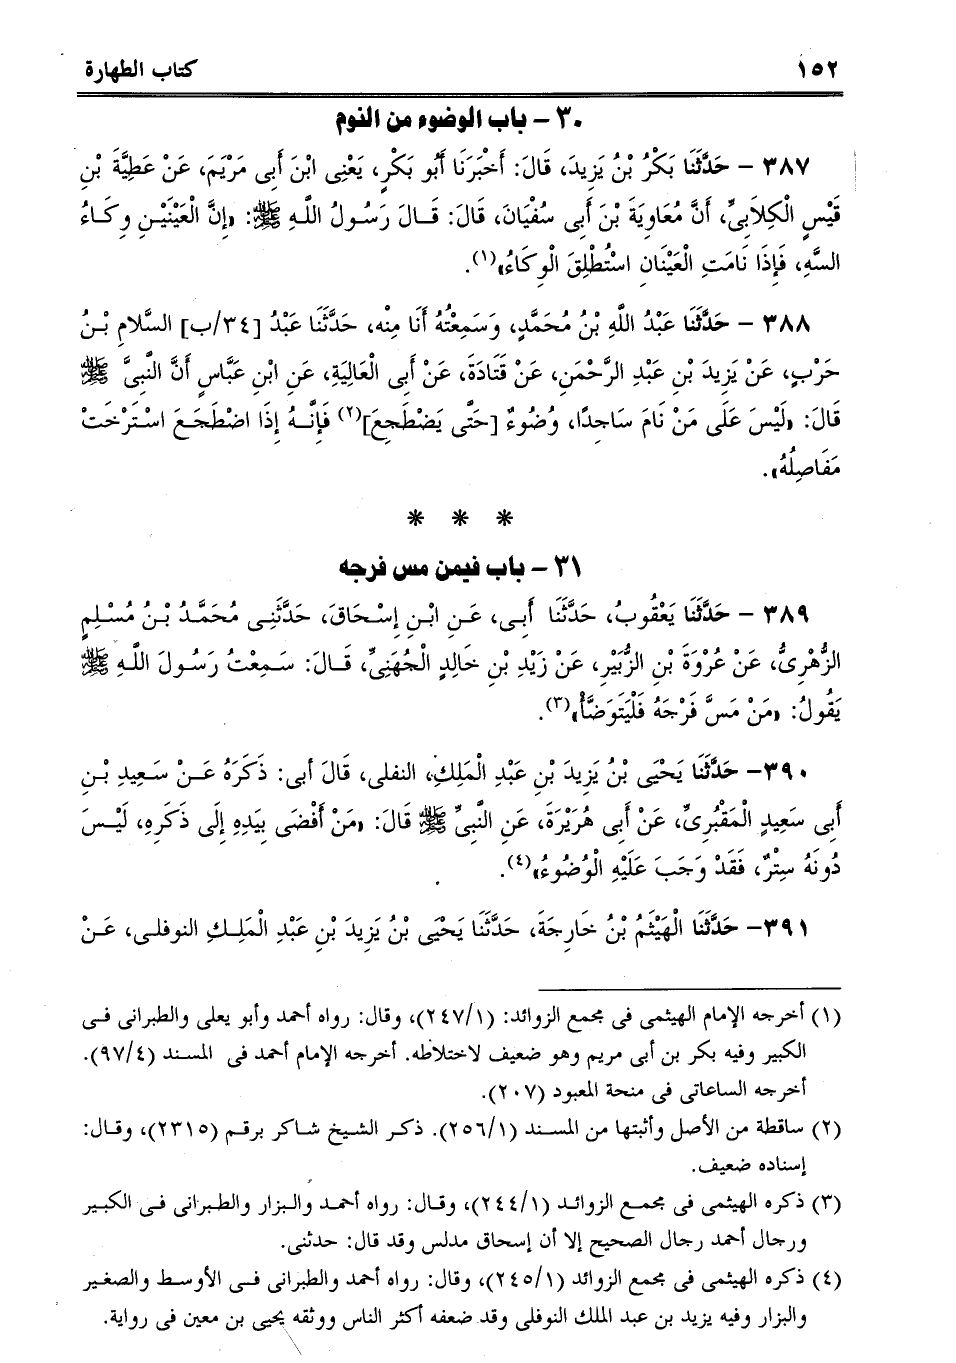 ١٥٢ كتاب الطهارة
٣٠ – باب الوضوء من النوم
٣٨٧ – حَدَّثَنَا بَكْرُ بْنُ يَزِيدَ، قَالَ: أَخْبَرَنَا أَبُو بَكْرٍ، يَعْنِى ابْنَ أَبِى مَرْيَمَ، عَنْ عَطِيَّةَ بْنِ
قَيْسٍ الْكِلَابِىِّ، أَنَّ مُعَاوِيَةَ بْنَ أَبِى سُفْيَانَ، قَالَ: قَالَ رَسُولُ اللَّهِ ﷺ: «إِنَّ الْعَيْنَيْنِ وِكَاءُ
السَّهِ، فَإِذَا نَامَتِ الْعَيْنَانِ اسْتُطْلِقَ الْوِكَاءُ»(١).
٣٨٨ – حَدَّثَنَا عَبْدُ اللَّهِ بْنُ مُحَمَّدٍ، وَسَمِعْتُهُ أَنَا مِنْه، حَدَّثَنَا عَبْدُ [٣٤/ب] السَّلَامِ بْنُ
حَرْبٍ، عَنْ يَزِيدَ بْنِ عَبْدِ الرَّحْمَنِ، عَنْ قَتَادَةَ، عَنْ أَبِى الْعَالِيَةِ، عَنِ ابْنِ عَبَّاسٍ أَنَّ النَّبِىَّ ﷺ
قَالَ: «لَيْسَ عَلَى مَنْ نَامَ سَاجِدًا، وُضُوءٌ [حَتَّى يَضْطَجِعَ](٢) فَإِنَّهُ إِذَا اضْطَجَعَ اسْتَرْخَتْ
مَفَاصِلُهُ».
* * *
٣١ – باب فيمن مس فرجه
٣٨٩ – حَدَّثَنَا يَعْقُوبُ، حَدَّثَنَا أَبِى، عَنِ ابْنِ إِسْحَاقَ، حَدَّثَنِى مُحَمَّدُ بْنُ مُسْلِمٍ
الزُّهْرِىُّ، عَنْ عُرْوَةَ بْنِ الزُّبَيْرِ، عَنْ زَيْدِ بْنِ خَالِدٍ الْجُهَنِىِّ، قَالَ: سَمِعْتُ رَسُولَ اللَّهِ ﷺ
يَقُولُ: «مَنْ مَسَّ فَرْجَهُ فَلْيَتَوَضَّأْ»(٣).
٣٩٠– حَدَّثَنَا يَحْيَى بْنُ يَزِيدَ بْنِ عَبْدِ الْمَلِكِ، النفلى، قَالَ أَبى: ذَكَرَهُ عَنْ سَعِيدِ بْنِ
أَبِى سَعِيدٍ الْمَقْبُرِىِّ، عَنْ أَبِى هُرَيْرَةَ، عَنِ النَّبِىِّ ﷺ قَالَ: «مَنْ أَفْضَى بِيَدِهِ إِلَى ذَكَرِهِ، لَيْسَ
دُونَهُ سِتْرٌ، فَقَدْ وَجَبَ عَلَيْهِ الْوُضُوءُ»(٤).
٣٩١– حَدَّثَنَا الْهَيْثَمُ بْنُ خَارِجَةَ، حَدَّثَنَا يَحْيَى بْنُ يَزِيدَ بْنِ عَبْدِ الْمَلِكِ النوفلى، عَنْ
(١) أخرجه الإمام الهيثمى فى مجمع الزوائد: (٢٤٧/١)، وقال: رواه أحمد وأبو يعلى والطبرانى فى
الكبير وفيه بكر بن أبى مريم وهو ضعيف لاختلاطه. أخرجه الإمام أحمد فى المسند (٩٧/٤).
أخرجه الساعاتى فى منحة المعبود (٢٠٧).
(٢) ساقطة من الأصل وأثبتها من المسند (٢٥٦/١). ذكر الشيخ شاكر برقم (٢٣١٥)، وقال:
إسناده ضعيف.
(٣) ذكره الهيثمى فى مجمع الزوائد (٢٤٤/١)، وقال: رواه أحمد والبزار والطبرانى فى الكبير
ورجال أحمد رجال الصحيح إلا أن إسحاق مدلس وقد قال: حدثنى.
(٤) ذكره الهيثمى فى مجمع الزوائد (٢٤٥/١)، وقال: رواه أحمد والطبرانى فى الأوسط والصغير
والبزار وفيه يزيد بن عبد الملك النوفلى وقد ضعفه أكثر الناس ووثقه يحيى بن معين فى رواية.